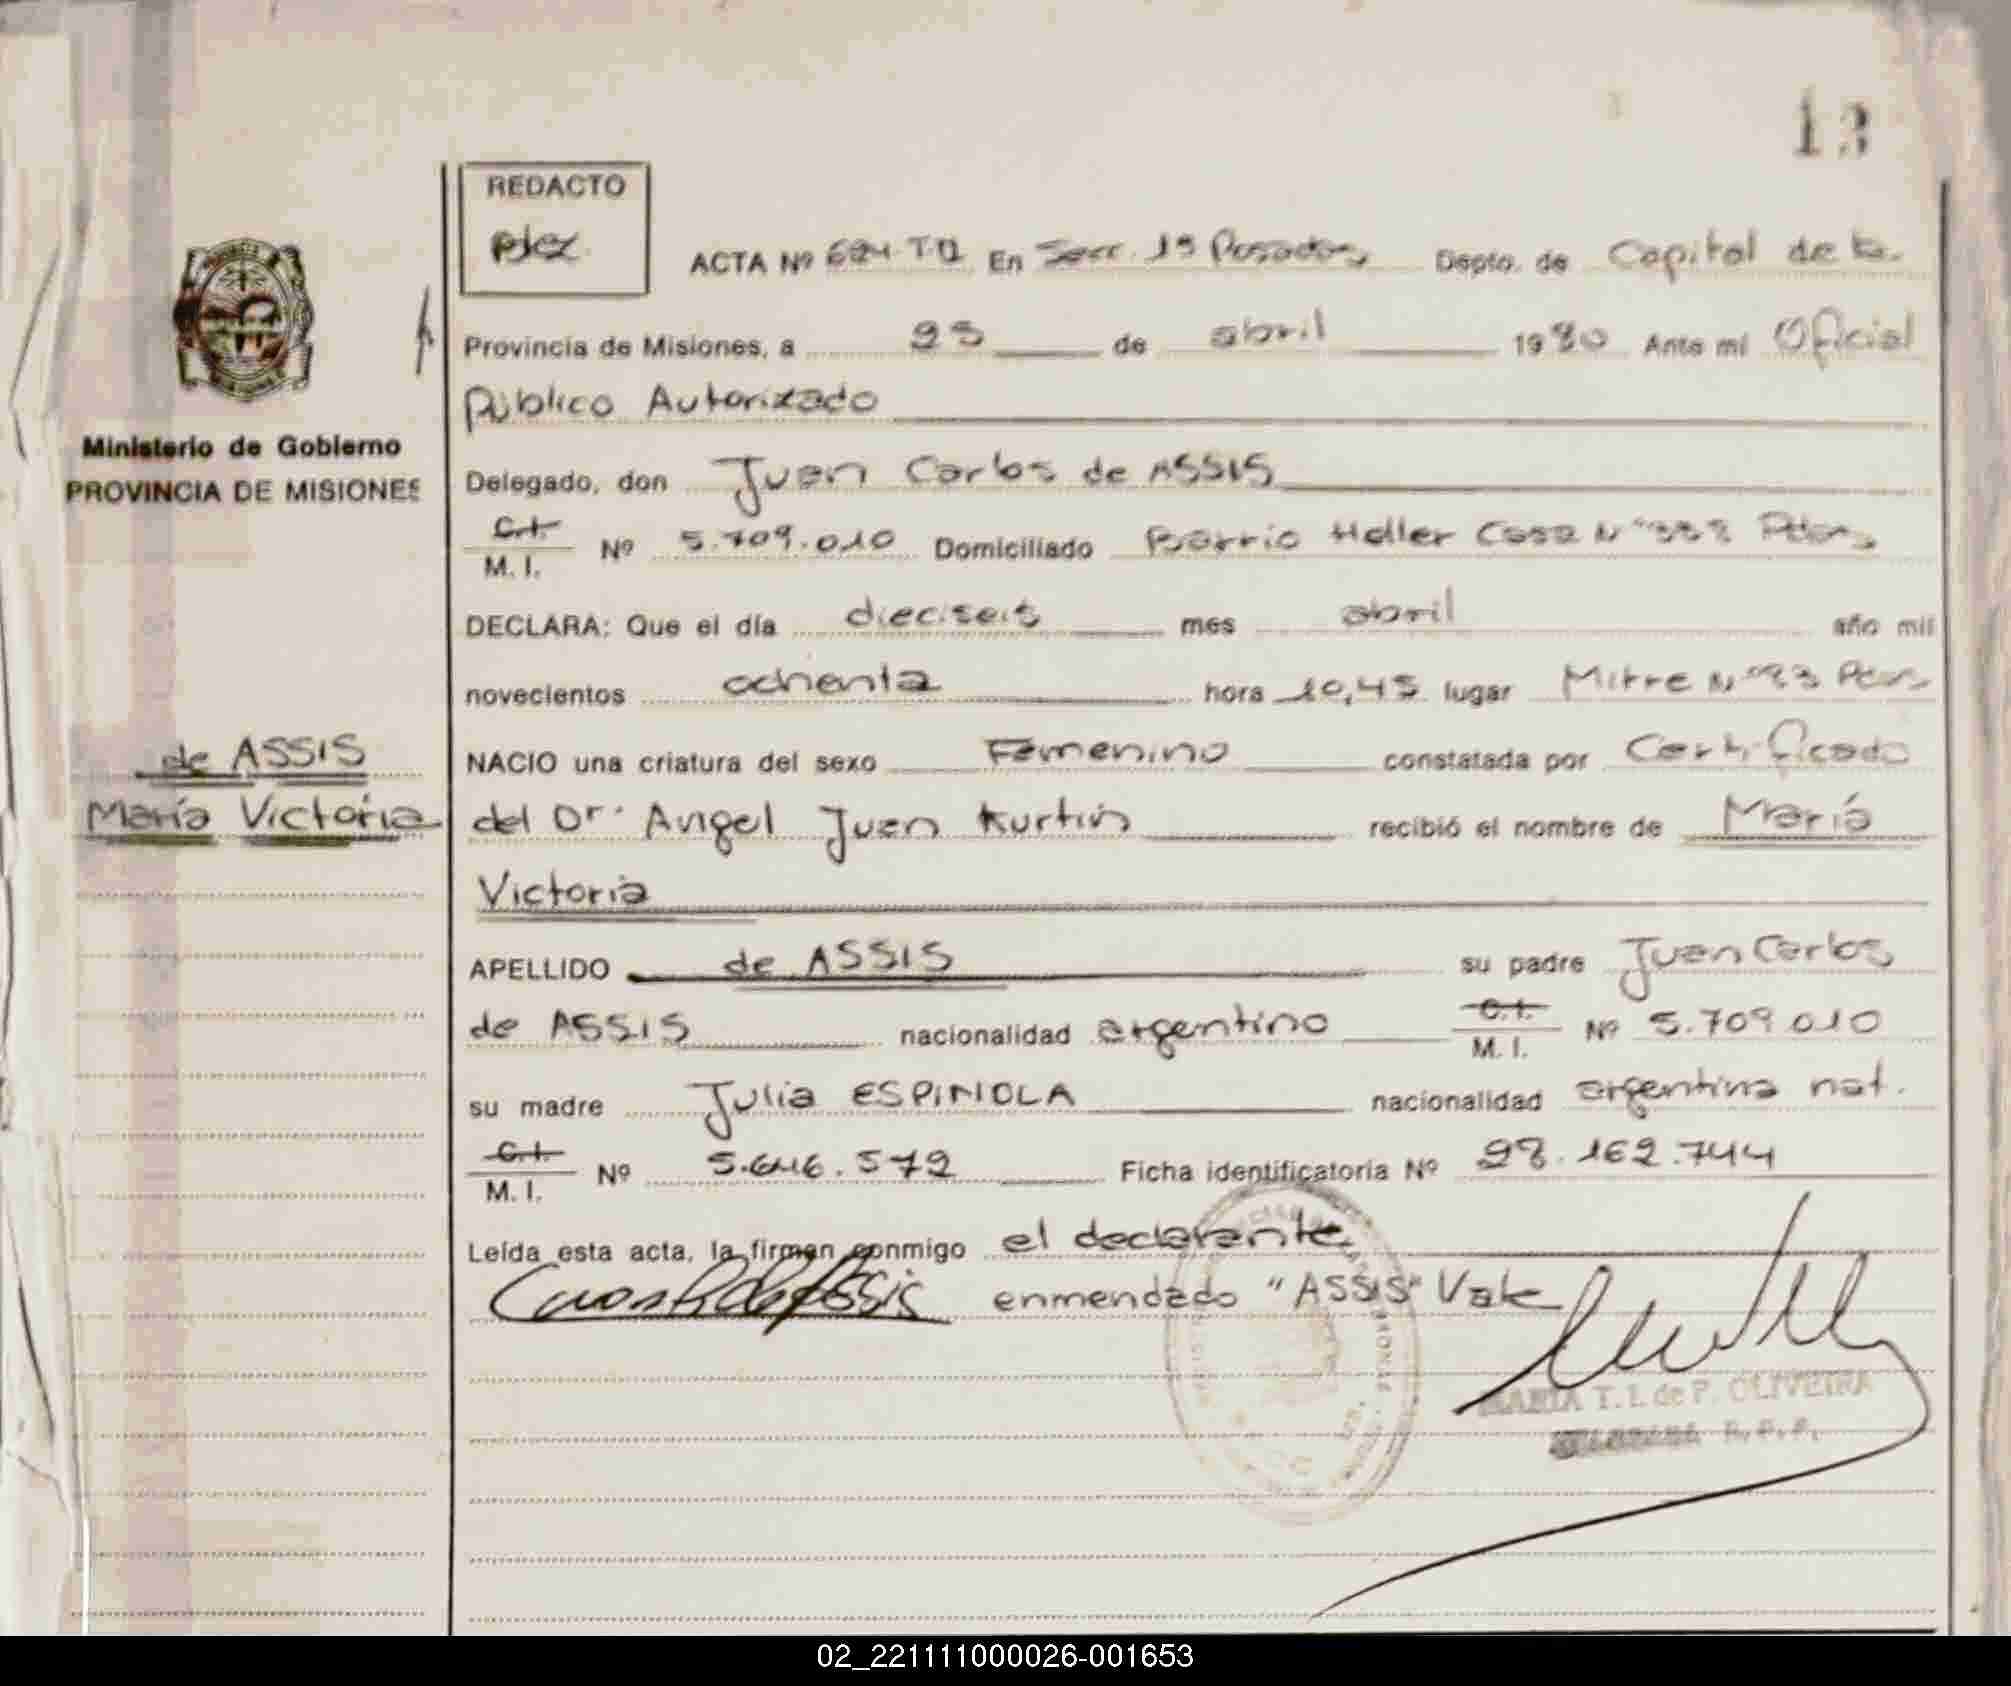 13
REDACTO
ACTA Nº 624 T.Q En Secc. 1ª Posadas, Depto. de Capital de la
Provincia de Misiones, a 23 de abril 1980 Ante mi Oficial
Público Autorizado
Ministerio de Gobierno
PROVINCIA DE MISIONES
Delegado, don Juan Carlos de ASSIS
C.I. M. I. Nº 5.709.010 Domiciliado Barrio Heller Casa Nº 332 Pdas,
DECLARA: Que el día dieciseis mes abril año mil
novecientos ochenta hora 10,45 lugar Mitre Nº 23 Pdas
de ASSIS
María Victoria
NACIO una criatura del sexo Femenino constatada por Certificado
del Dr. Angel Juan Kurtin recibió el nombre de María
Victoria
APELLIDO de ASSIS su padre Juan Carlos
de ASSIS nacionalidad argentino C.I. M. I. Nº 5.709.010
su madre Julia ESPINOLA nacionalidad argentina nat.
C.I. M. I. Nº 5.646.572 Ficha identificatoria Nº 28.162.744
Leída esta acta, la firman conmigo el declarante.
enmendado "ASSIS" Vale
MARIA T. L. de P. OLIVEIRA
02_221111000026-001653